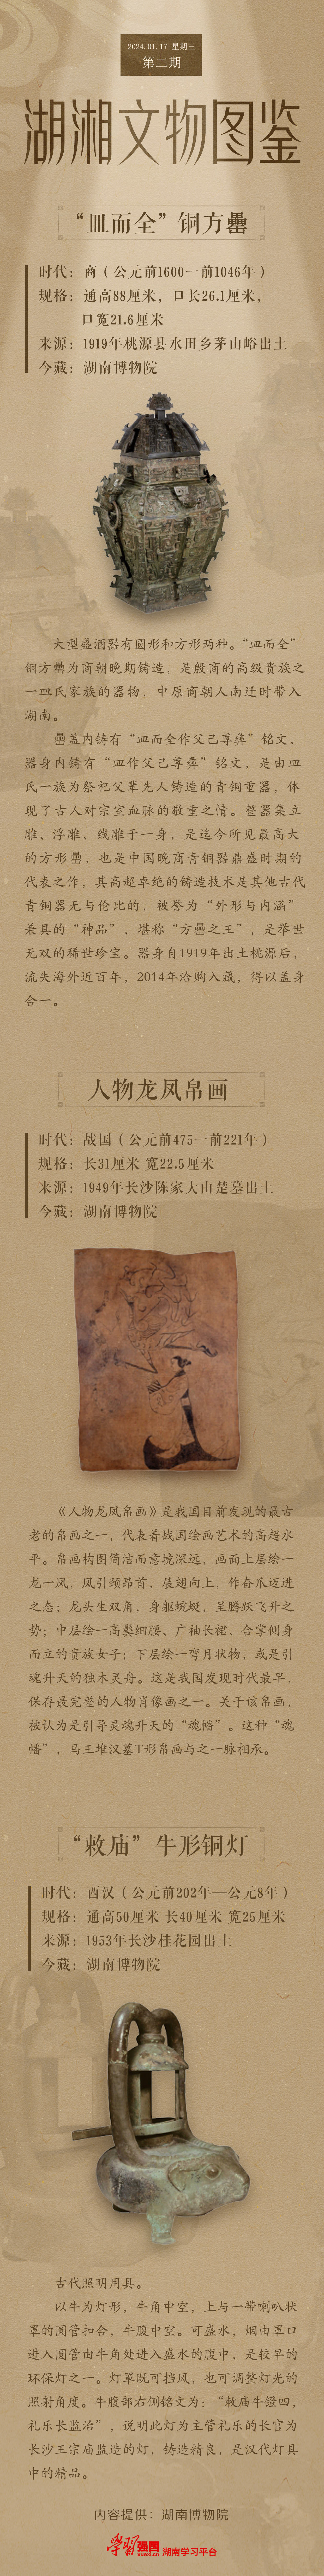 2024.01.17 星期三
第二期
湖湘文物图鉴
“皿而全”铜方罍
时代：商（公元前1600一前1046年）
规格：通高88厘米，口长26.1厘米，
口宽21.6厘米
来源：1919年桃源县水田乡茅山峪出土
今藏：湖南博物院
大型盛酒器有圆形和方形两种。“皿而全”
铜方罍为商朝晚期铸造，是殷商的高级贵族之
一皿氏家族的器物，中原商朝人南迁时带入
湖南。
罍盖内铸有“皿而全作父己尊彝”铭文，
器身内铸有“皿作父己尊彝”铭文，是由皿
氏一族为祭祀父辈先人铸造的青铜重器，体
现了古人对宗室血脉的敬重之情。整器集立
雕、浮雕、线雕于一身，是迄今所见最高大
的方形罍，也是中国晚商青铜器鼎盛时期的
代表之作，其高超卓绝的铸造技术是其他古代
青铜器无与伦比的，被誉为“外形与内涵”
兼具的“神品”，堪称“方罍之王”，是举世
无双的稀世珍宝。器身自1919年出土桃源后，
流失海外近百年，2014年洽购入藏，得以盖身
合一。
人物龙凤帛画
时代：战国（公元前475一前221年）
规格：长31厘米 宽22.5厘米
来源：1949年长沙陈家大山楚墓出土
今藏：湖南博物院
《人物龙凤帛画》是我国目前发现的最古
老的帛画之一，代表着战国绘画艺术的高超水
平。帛画构图简洁而意境深远，画面上层绘一
龙一凤，凤引颈昂首、展翅向上，作奋爪迈进
之态；龙头生双角，身躯蜿蜒，呈腾跃飞升之
势；中层绘一高髻细腰、广袖长裙、合掌侧身
而立的贵族女子；下层绘一弯月状物，或是引
魂升天的独木灵舟。这是我国发现时代最早，
保存最完整的人物肖像画之一。关于该帛画，
被认为是引导灵魂升天的“魂幡”。这种“魂
幡”，马王堆汉墓T形帛画与之一脉相承。
“敕庙”牛形铜灯
时代：西汉（公元前202年—公元8年）
规格：通高50厘米 长40厘米 宽25厘米
来源：1953年长沙桂花园出土
今藏：湖南博物院
古代照明用具。
以牛为灯形，牛角中空，上与一带喇叭状
罩的圆管扣合，牛腹中空。可盛水，烟由罩口
进入圆管由牛角处进入盛水的腹中，是较早的
环保灯之一。灯罩既可挡风，也可调整灯光的
照射角度。牛腹部右侧铭文为：“敕庙牛镫四，
礼乐长监治”，说明此灯为主管礼乐的长官为
长沙王宗庙监造的灯，铸造精良，是汉代灯具
中的精品。
内容提供：湖南博物院
学习强国 xuexi.cn 湖南学习平台